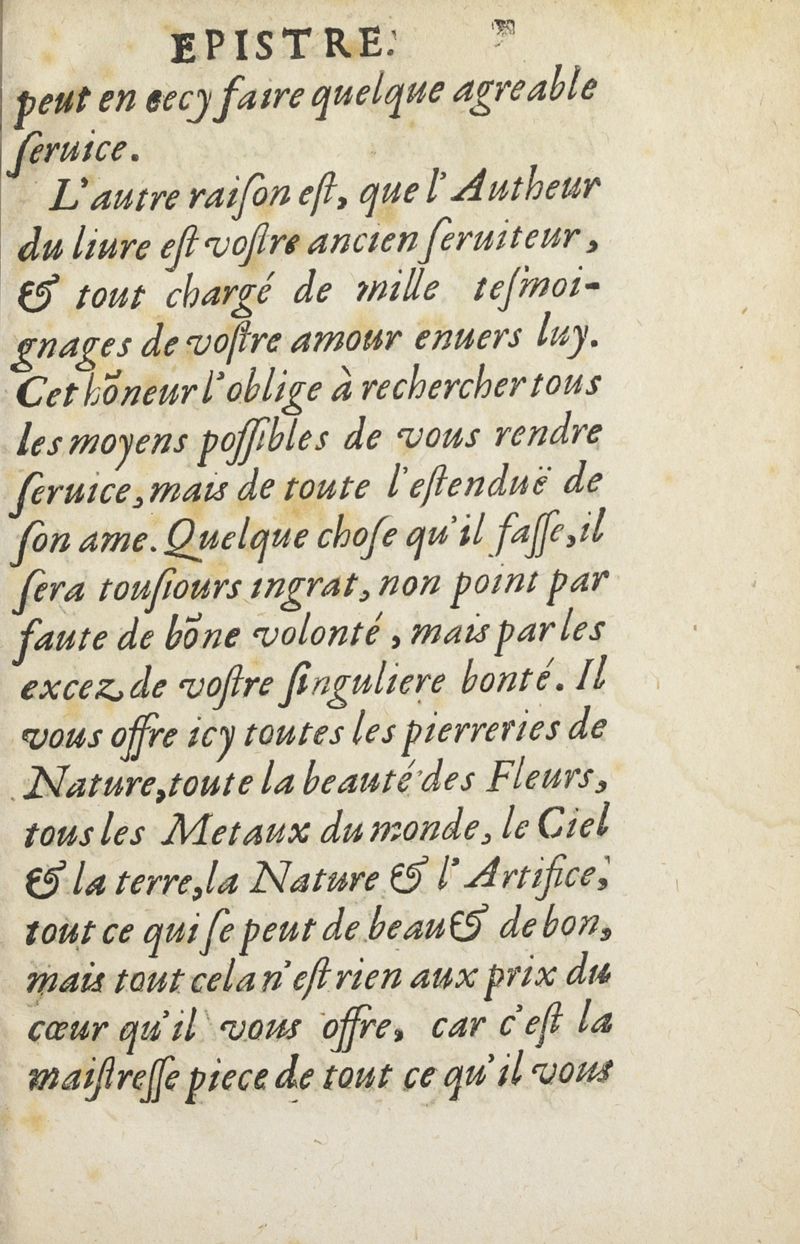 EPISTRE.
peut en cecy faire quelque agreable
ſeruice.
L'autre raiſon eſt, que l'Autheur
du liure eſt voſtre ancien ſeruiteur,
& tout chargé de mille teſmoi-
gnages de voſtre amour enuers luy.
Cet hõneur l'oblige à rechercher tous
les moyens poſſibles de vous rendre
ſeruice, mais de toute l'eſtenduë de
ſon ame. Quelque choſe qu'il faſſe, il
ſera touſiours ingrat, non point par
faute de bõne volonté, mais par les
excez de voſtre ſinguliere bonté. Il
vous offre icy toutes les pierreries de
Nature, toute la beauté des Fleurs,
tous les Metaux du monde, le Ciel
& la terre, la Nature & l'Artifice,
tout ce qui ſe peut de beau & de bon,
mais tout cela n'eſt rien aux prix du
cœur qu'il vous offre, car c'eſt la
maiſtreſſe piece de tout ce qu'il vous